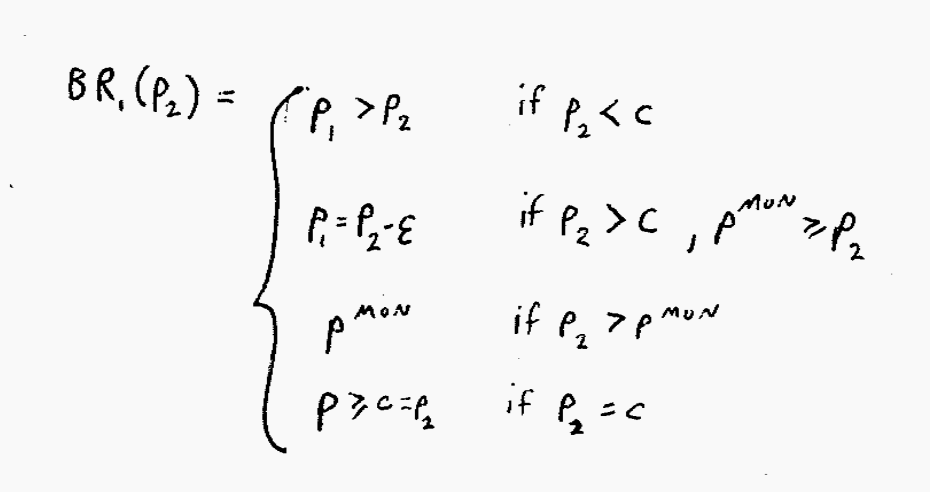 BR₁(P₂) = { P₁ > P₂ if P₂ < c
P₁ = P₂ - ε if P₂ > c , P^MON ⩾ P₂
P^MON if P₂ > P^MON
P ⩾ c = P₂ if P₂ = c